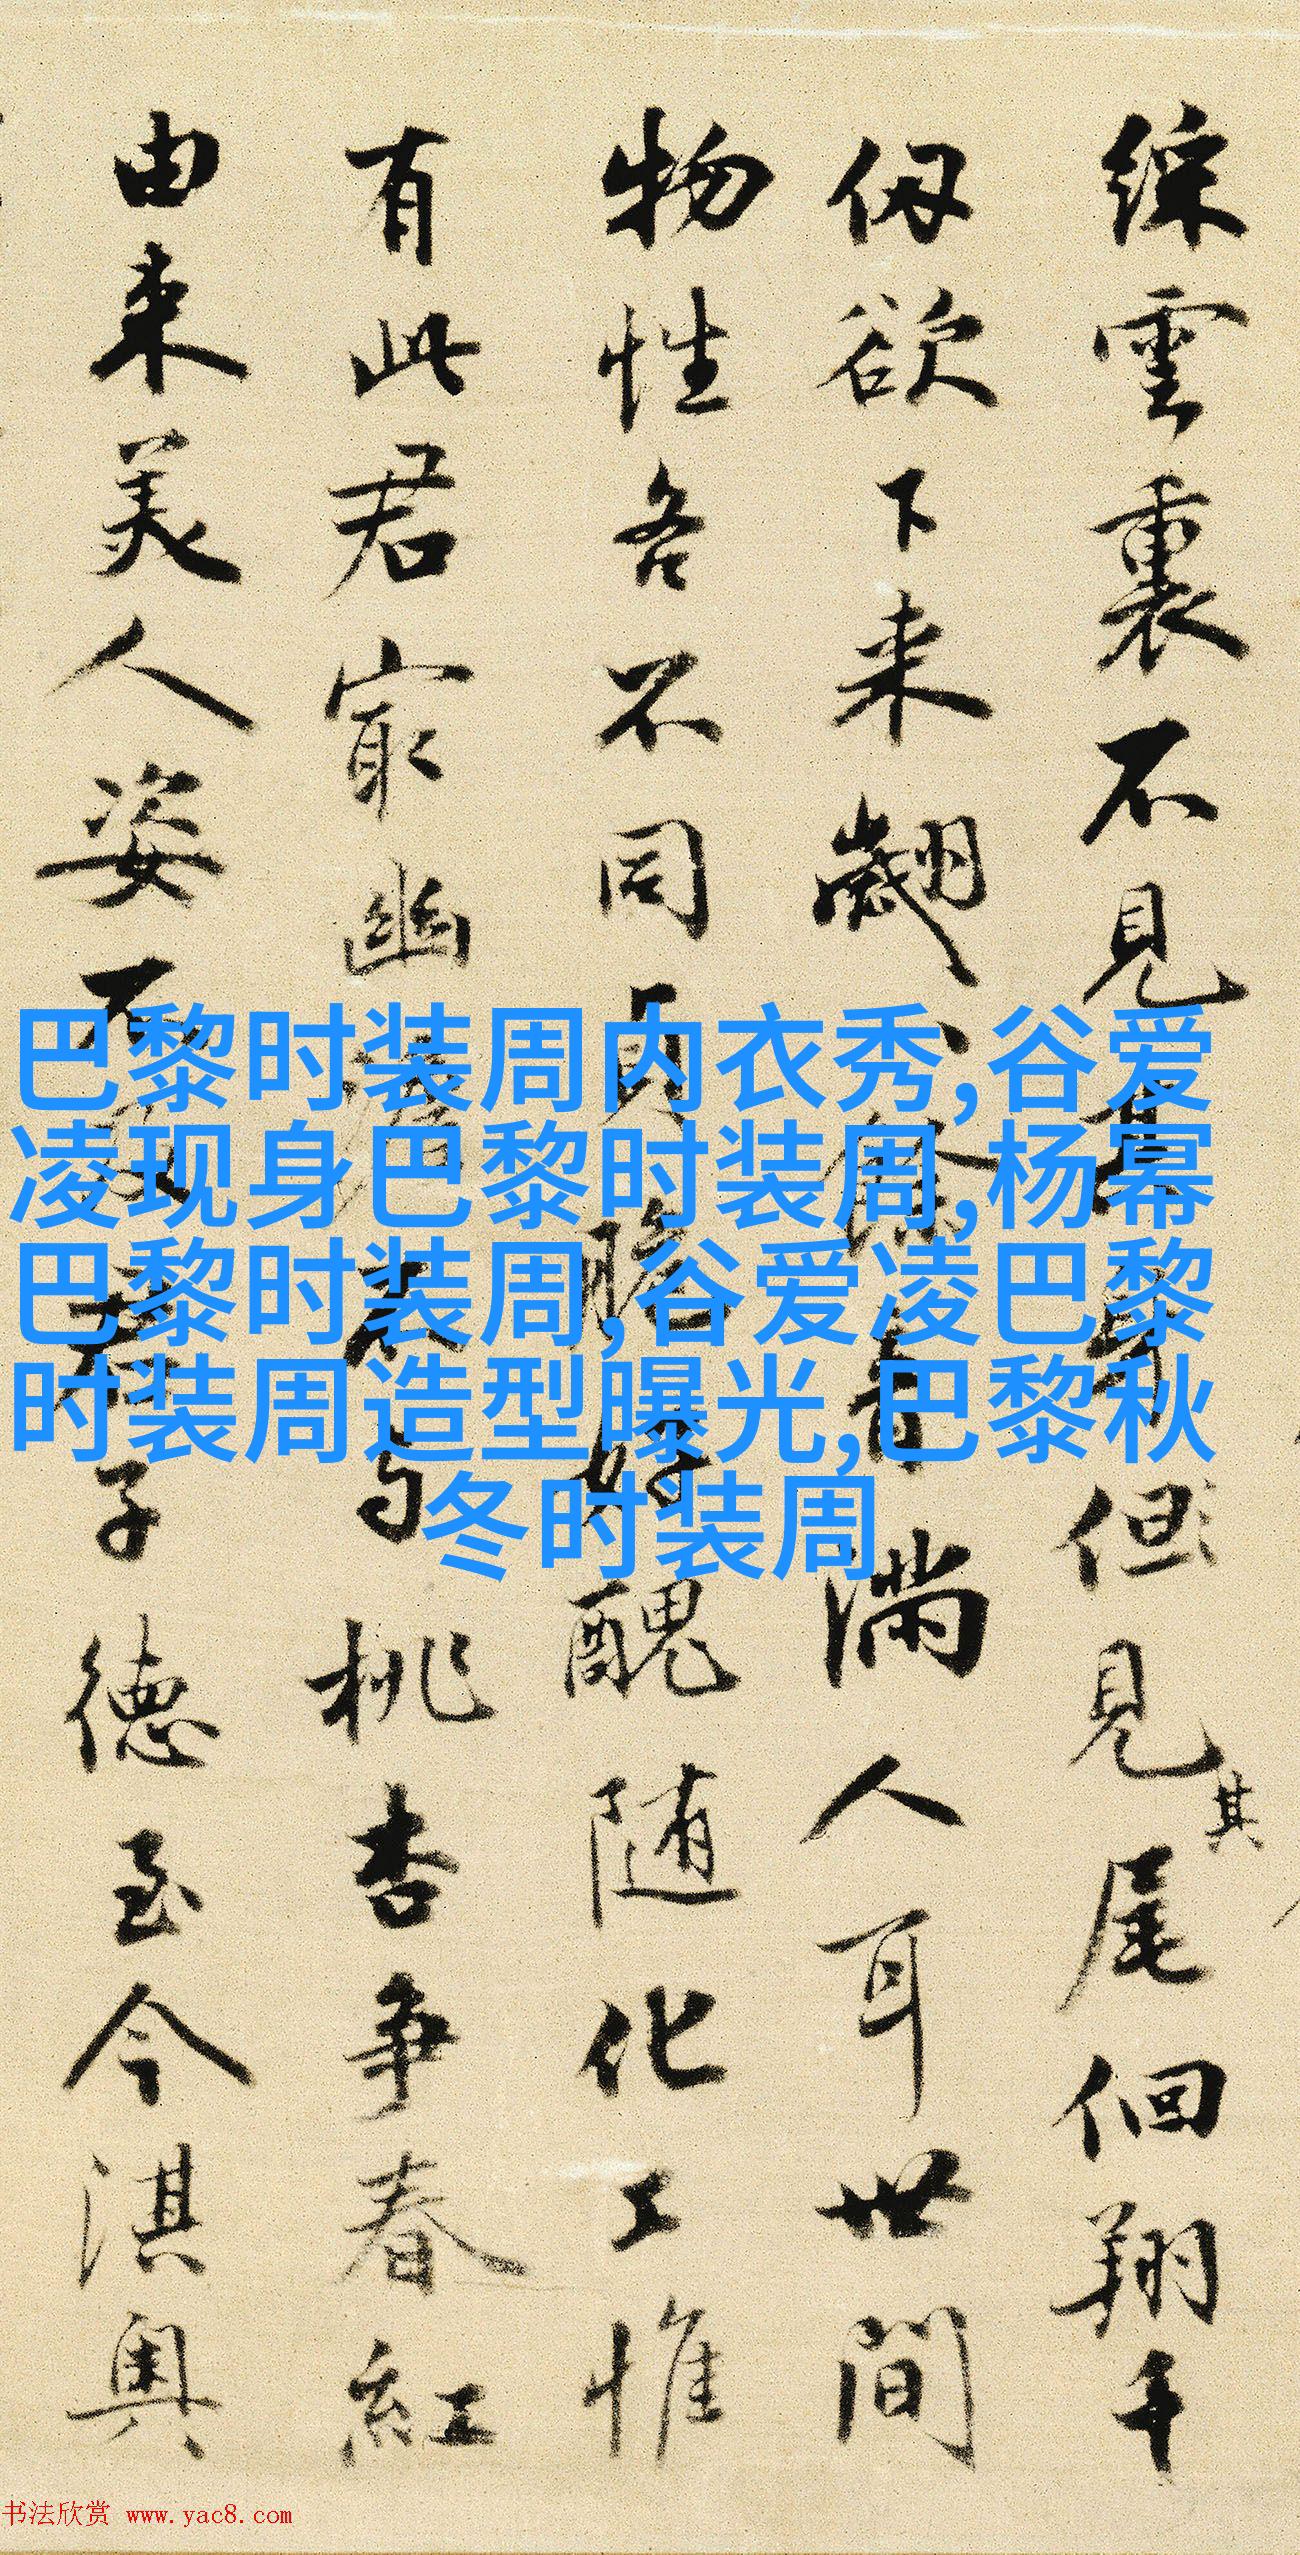 綵雲裏不見身但見其尾佪翔千
仞欲下来翽餘音滿人耳世間
物性各不同好醜随化工惟
有此君㝡幽与桃杏争春紅
由来美人姿不君子德至今淇奥
巴黎时装周内衣秀,谷爱
凌现身巴黎时装周,杨幂
巴黎时装周,谷爱凌巴黎
时装周造型曝光,巴黎秋
冬时装周
书法欣赏 www.yac8.com